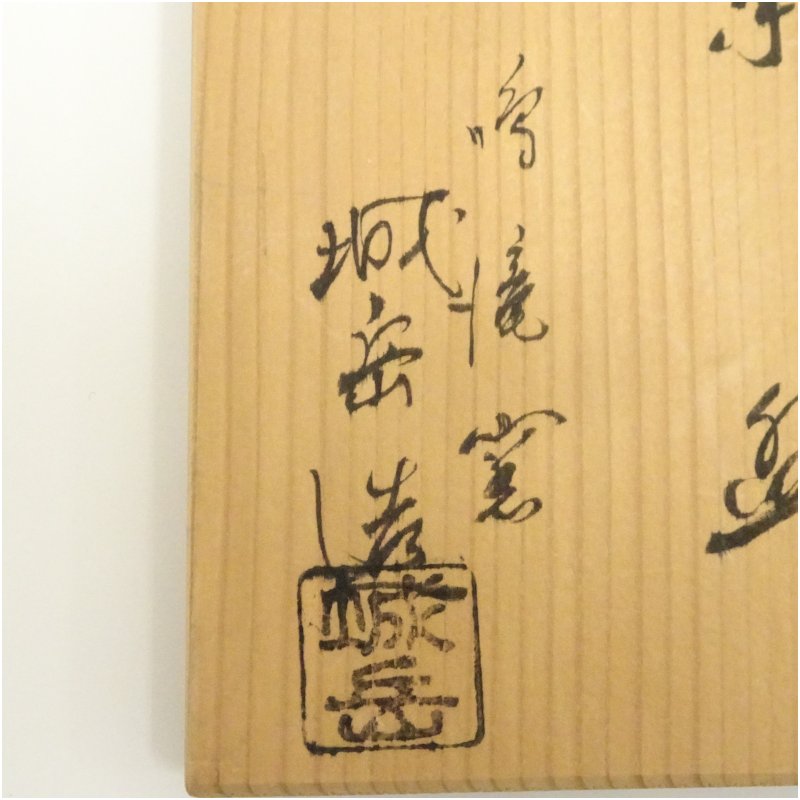 鳴滝窯
城岳造
城岳